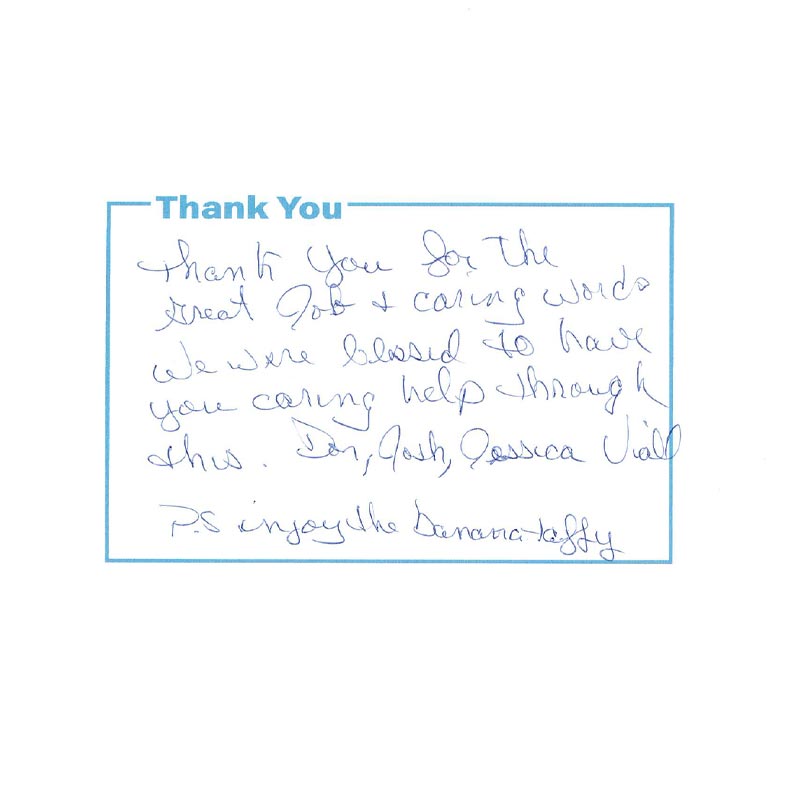 Thank You
Thank you for the
great Job & caring words
We were blessed to have
you caring help through
this. Don, Josh, Jessica Viall
P.S injoy the banana taffy